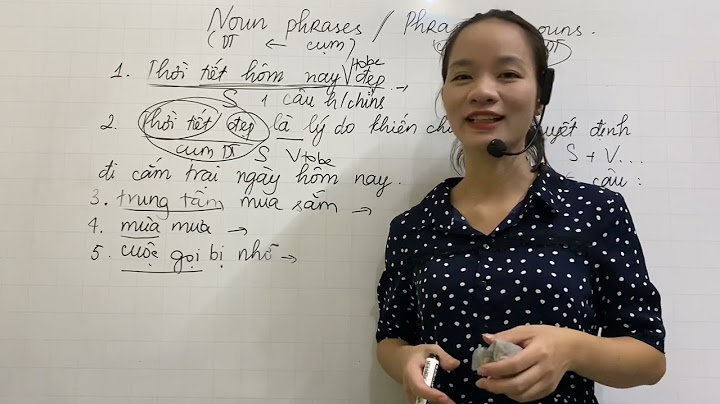 Noun phrases / Phras ouns.
(DT ← cụm)
Vtobe
1. Thời tiết hôm nay √ đẹp →
S 1 câu h/chỉnh
2. Thời tiết / đẹp là lý do khiến ch uyết định
cụm DT S Vtobe S + V...
đi cắm trại ngày hôm nay. câu :
3. trung tâm mua sắm →
4. mùa mưa →
5. cuộc gọi bị nhỡ →